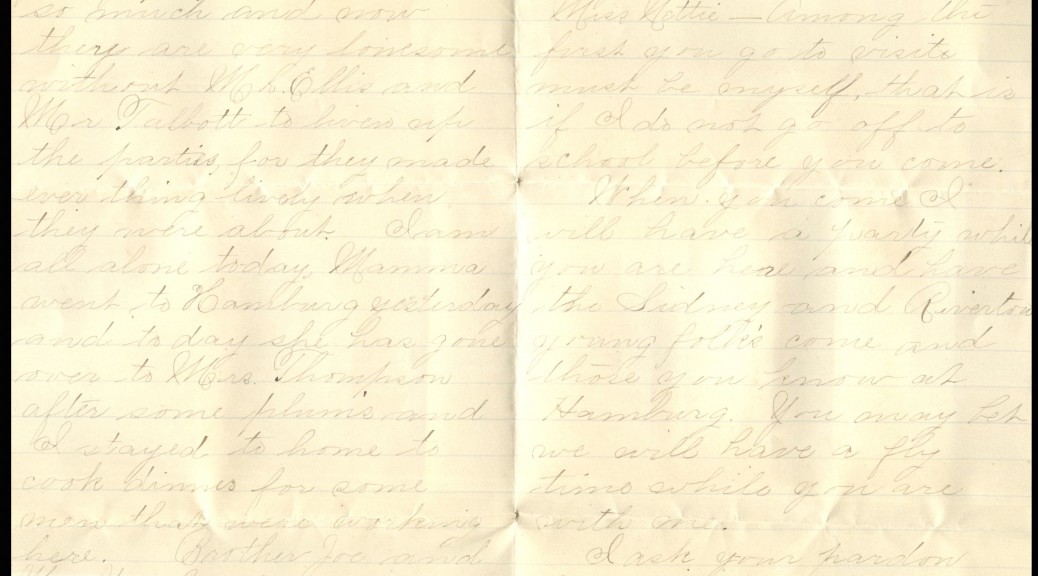 so much and now
they are very lonesome
without Mr. Ellis and
Mr Talbott to liven up
the parties, for they made
every thing lively when
they were about. I am
all alone today, Mamma
went to Hamburg yesterday
and today she has gone
over to Mrs. Thompson
after some plums and
I stayed to home to
cook dinner for some
men that were working
here. Brother Joe and
Miss Hettie — Among the
first you go to visit
must be myself, that is
if I do not go off to
school before you come.
When you come I
will have a party while
you are here and have
the Sidney and Riverton
young folk's come and
those you know at
Hamburg. You may bet
we will have a fly
time while you are
with me.
I ask your pardon